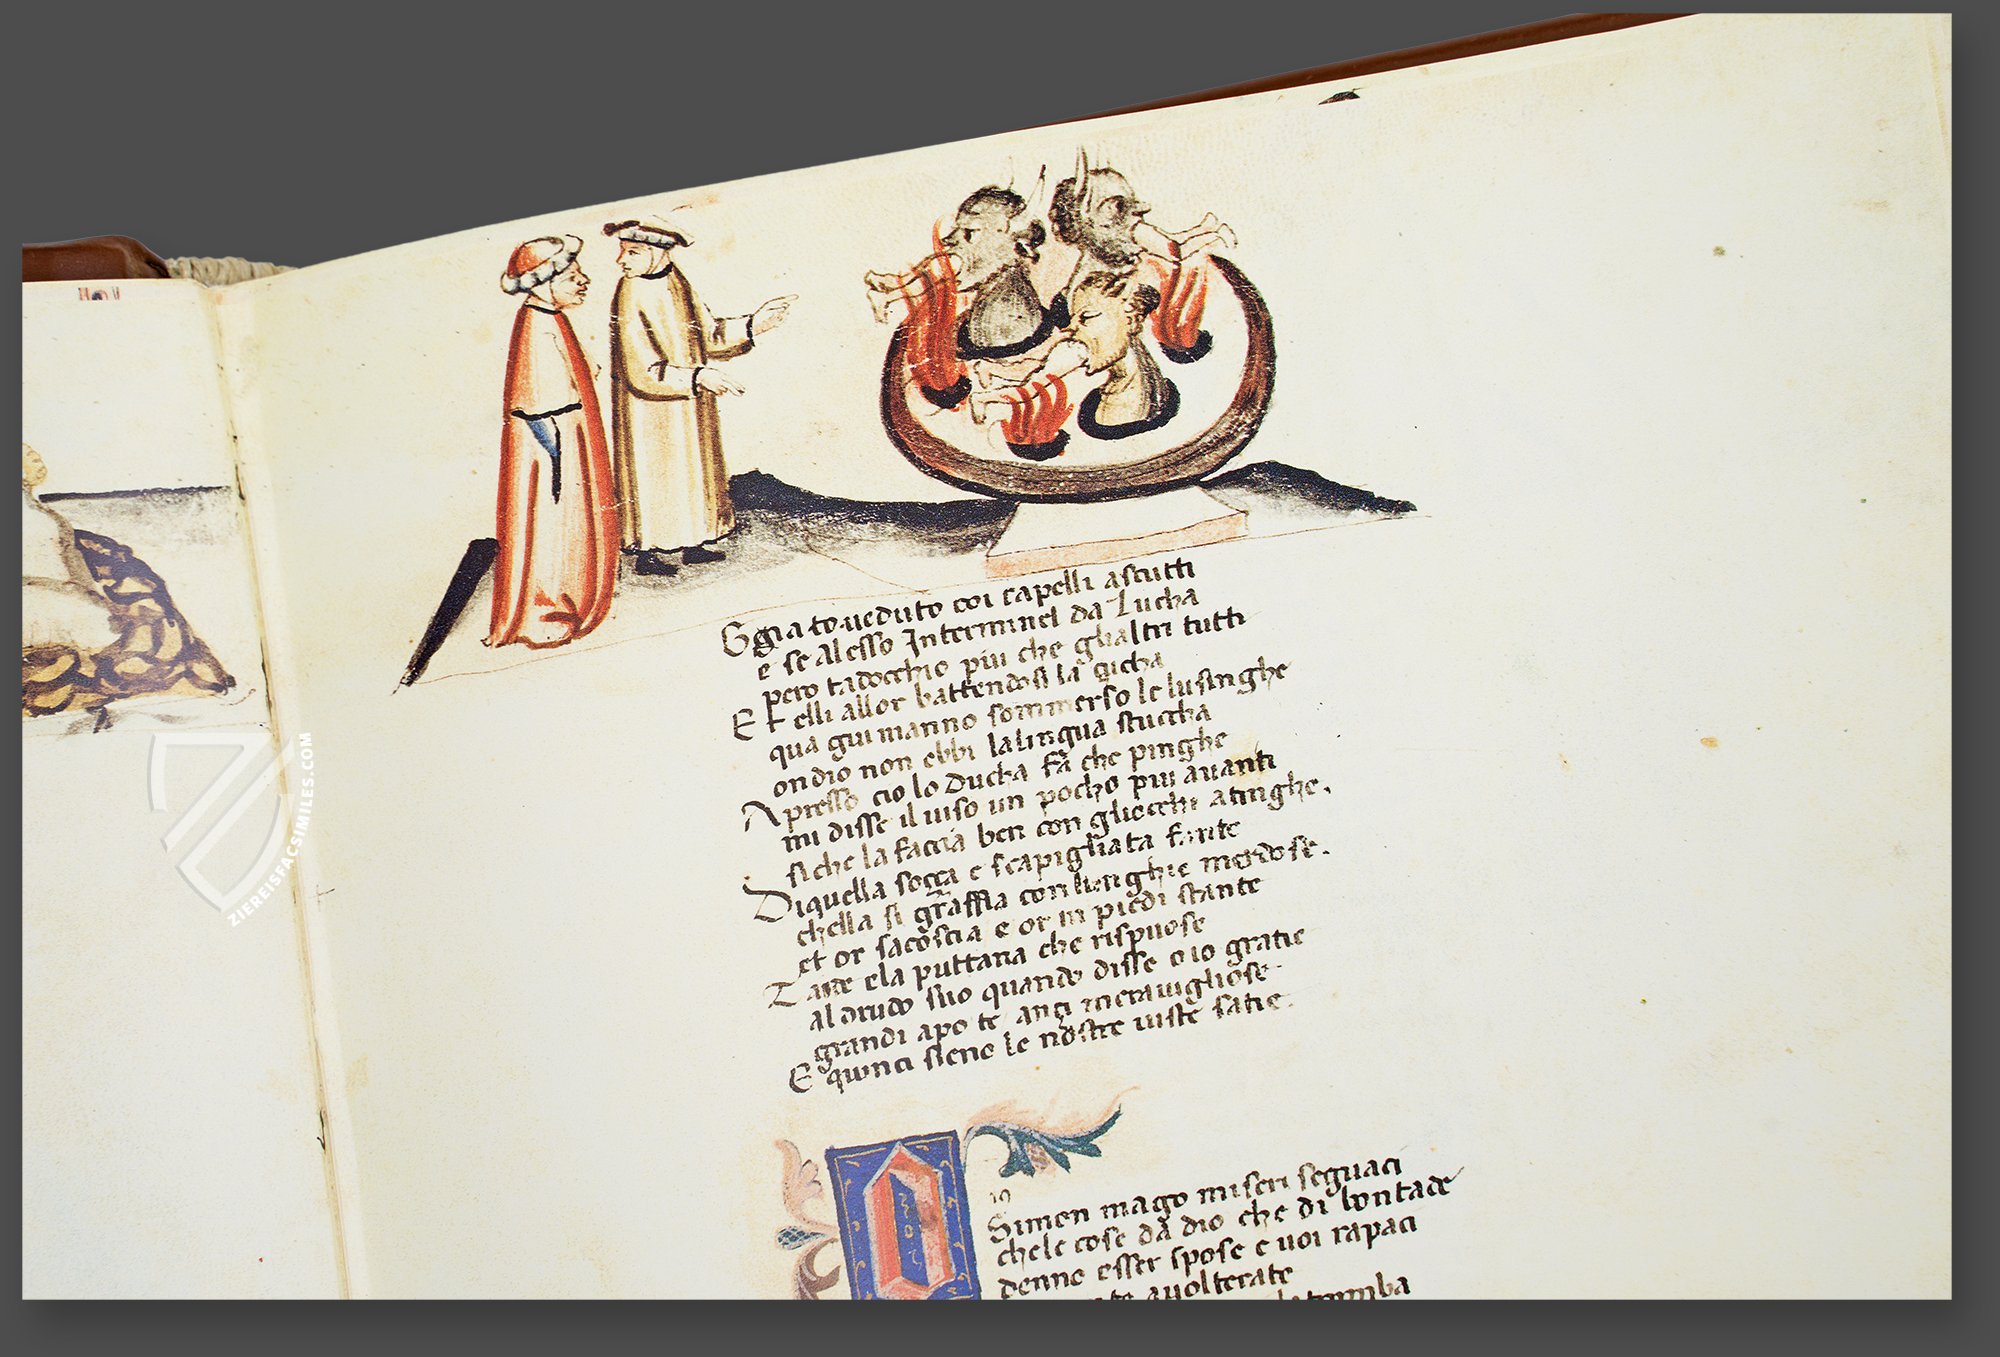 Ggia to ueduto coi capelli asciutti
e se Alesso Interminel da Lucha
pero tadocchio piu che glialtri tutti
Et elli allor battendosi la çucha
qua giu manno sommerso le lusinghe
ondio non ebbi la lingua stuccha
Apresso cio lo ducha fa che pinghe
mi disse il uiso un pocho piu auanti
si che la faccia ben con gliocchi atinghe.
Diquella soçça e scapigliata fante
chella si graffia con lunghie merdose.
et or sacoscia e or in piedi stante
Taide ela puttana che rispuose
al drudo suo quando disse o io gratie
grandi apo te ançi merauigliose
E quinci sieno le nostre uiste satie.
O
Simon mago miseri seguaci
chele cose da dio che di bontade
denno esser spose e uoi rapaci
auolterate
tromba
ZIEREISFACSIMILES.COM